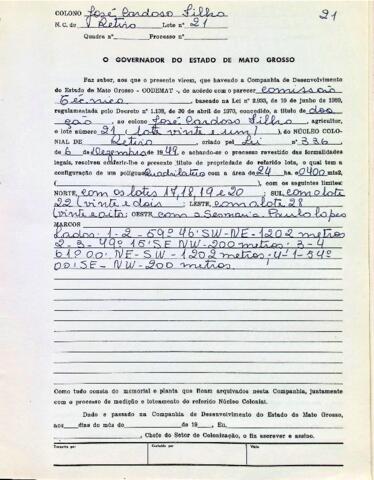 21
COLONO José Cardoso Filho
N. C. de Retiro Lote nº 21
Quadra nº Processo nº
O GOVERNADOR DO ESTADO DE MATO GROSSO
Faz saber, aos que o presente virem, que havendo a Companhia de Desenvolvimento
do Estado de Mato Grosso - CODEMAT -, de acordo com o parecer comissão
Técnico, baseado na Lei nº 2.933, de 19 de junho de 1969,
regulamentada pelo Decreto nº 1.138, de 20 de abril de 1970, concedido, a título de doa
ção, ao colono José Cardoso Filho, agricultor,
o lote número 21 (lote vinte e um), do NÚCLEO COLO-
NIAL DE Retiro criado pela Lei nº 336
de 6 de Dezembro de 1949 e achando-se o processo revestido das formalidades
legais, resolveu conferir-lhe o presente título de propriedade do referido lote, o qual tem a
configuração de um polígono Quadrilatero com a área de 24 ha. 0400 mts2,
( ), com os seguintes limites:
NORTE, com os lotes 17, 18, 19 e 20; SUL com o lote
22 (vinte e dois; LESTE, com o lote 28
(vinte e oito; OESTE, com a Sesmaria Paulo Lopes
MARCOS
Lados: 1-2-59º 46' SW-NE-1202 metros
2-3-49º 15' SE NW-200 metros: 3-4
61º 00' NE-SW-1202 metros: 4-1-54º
00' SE-NW-200 metros.
Como tudo consta do memorial e planta que ficam arquivados nesta Companhia, juntamente
com o processo de medição e loteamento do referido Núcleo Colonial.
Dado e passado na Companhia de Desenvolvimento do Estado de Mato Grosso,
aos dias do mês do de 19 , Eu,
, Chefe do Setor de Colonização, o fiz escrever e assino.
Transcrito por: Conferido por: Visto: